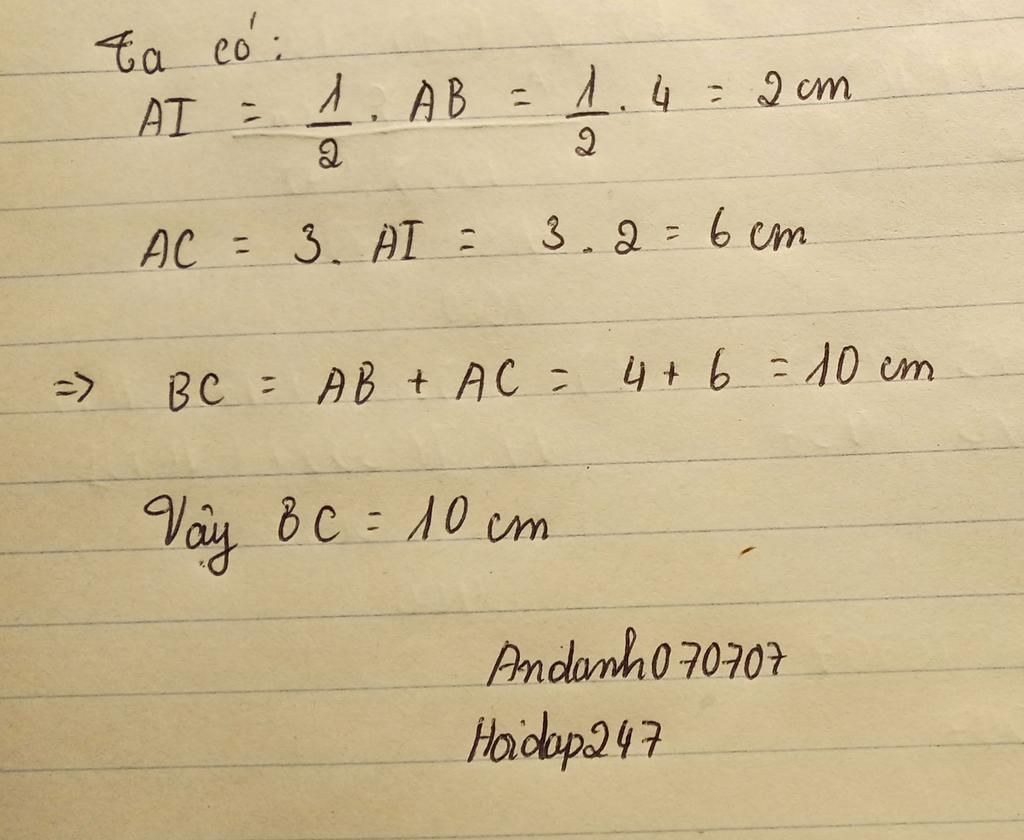 Ta có:
AI = 1/2 . AB = 1/2 . 4 = 2 cm
AC = 3. AI = 3 . 2 = 6 cm
=> BC = AB + AC = 4 + 6 = 10 cm
Vậy BC = 10 cm
Andanh070707
Hoidap247